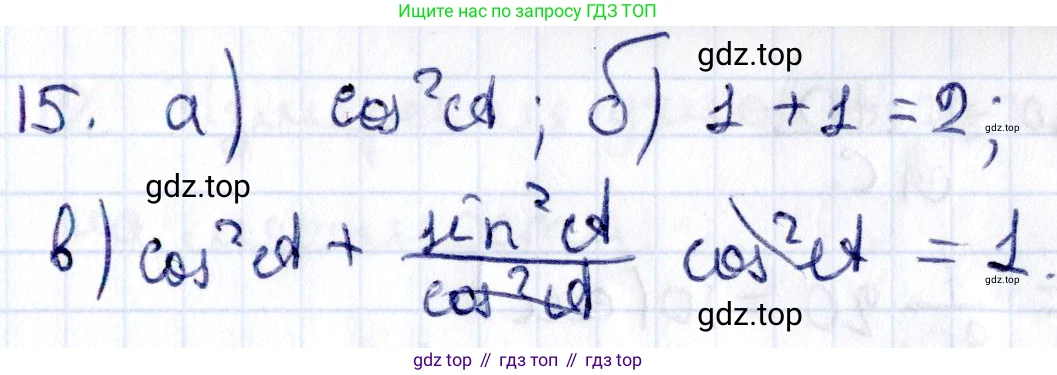 Ищите нас по запросу ГДЗ ТОП
gdz.top
15. а) cos²α; б) 1 + 1 = 2;
gdz.top
gdz.top
в) cos²α + sin²α/cos²α cos²α = 1.
gdz.top
gdz.top
gdz.top // гдз топ // gdz top